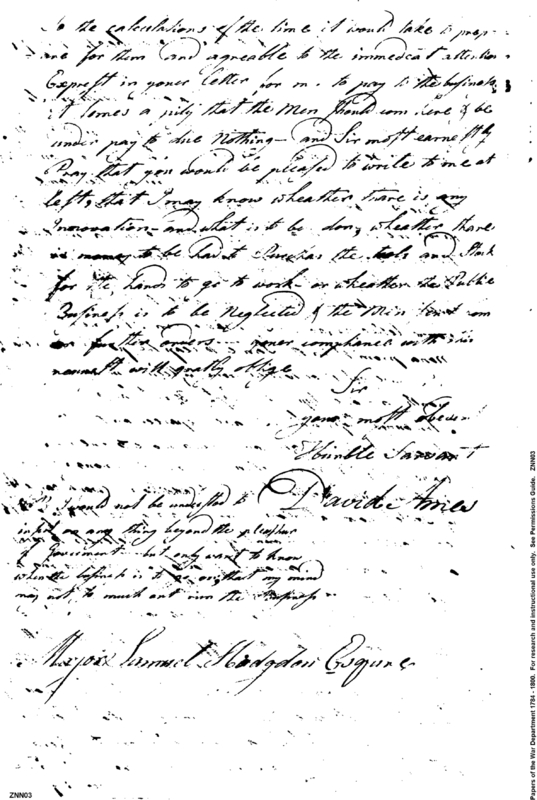 To the calculations of the time it would take to prep-
are for them and agreeable to the immedeat attention
Exprest in youer letter for me to pay to the business
it semes a pity that the Men should com here & be
under pay to due Nothing — and Sir most earnestly
Pray that you would be pleased to write to me at
left, that I may know wheather thare is any
Innovation and what is to be don, wheather thare
is money to be had to Purchas the tools and Stock
for the hands to go to work or wheather the Public
Business is to be Neglected & the Men
for further orders — youer compliance with this
request will gratly oblige
Sir
your most obedent
Humble Sarvant
David Ames
I would not be understood to
insist on any thing beyond the pleasher
of Goverment but only want to know
when the business is to go on, that my mind
may not to much out run the Business
Major Samuel Hodgdon Esquire
ZNN03
Papers of the War Department 1784 - 1800. For research and instructional use only. See Permissions Guide. ZNN03